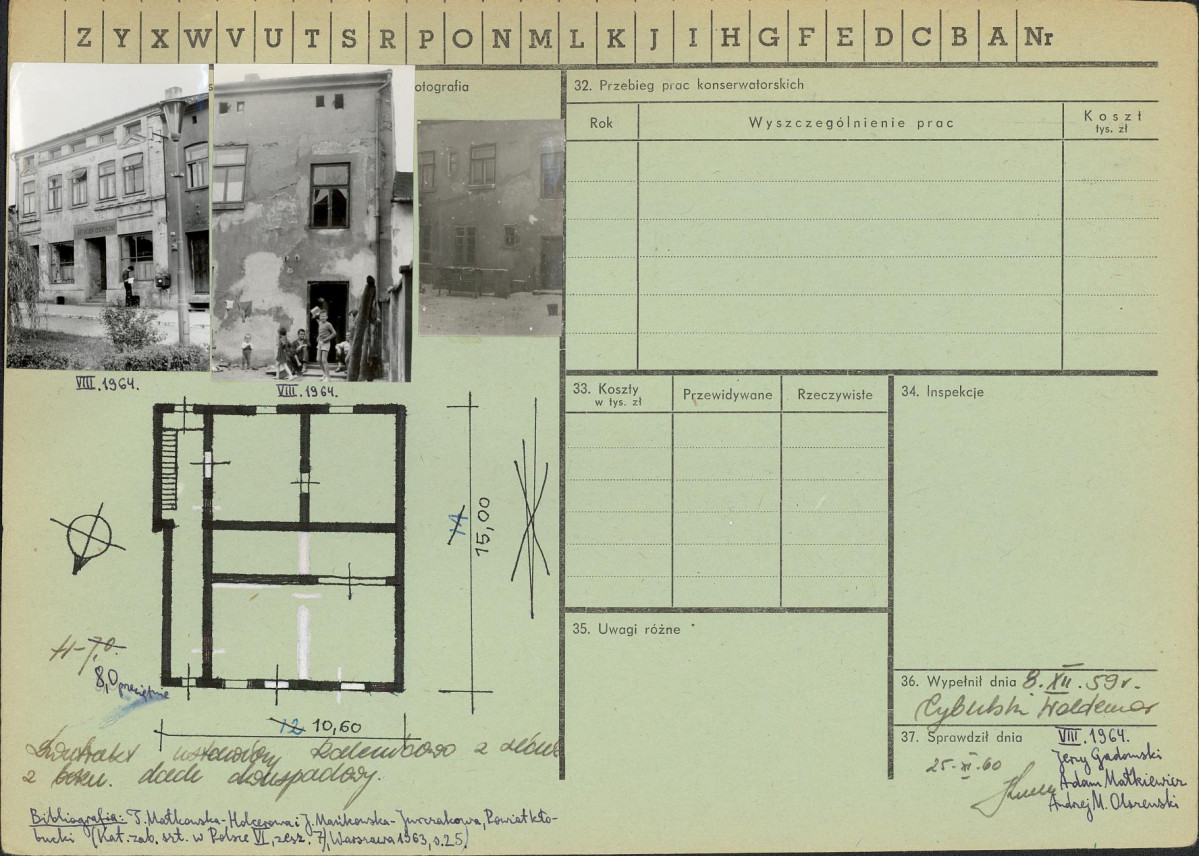 Z Y X W V U T S R P O N M L K J I H G F E D C B A Nr
otografia
VIII.1964.
VIII.1964.
14
15,00
H-7,0.
8,0 przeciętnie
12 10,60
z boku. dach dwuspadowy.
Bibliografia: T. Małkowska-Holcerowa i J. Mańkowska-Jurczakowa, Powiat kło-
bucki (Kat. zab. szt. w Polsce VI, zesz. 7), Warszawa 1963, s.25)
32. Przebieg prac konserwatorskich
Rok
Wyszczególnienie prac
Koszt
tys. zł
33. Koszty
w tys. zł
Przewidywane
Rzeczywiste
34. Inspekcje
35. Uwagi różne
36. Wypełnił dnia 8.XII.59r.
Cybulski Waldemar
37. Sprawdził dnia VIII.1964.
25-XI-60
Jerzy Gadomski
Adam Małkiewicz
Andrzej M. Olszewski